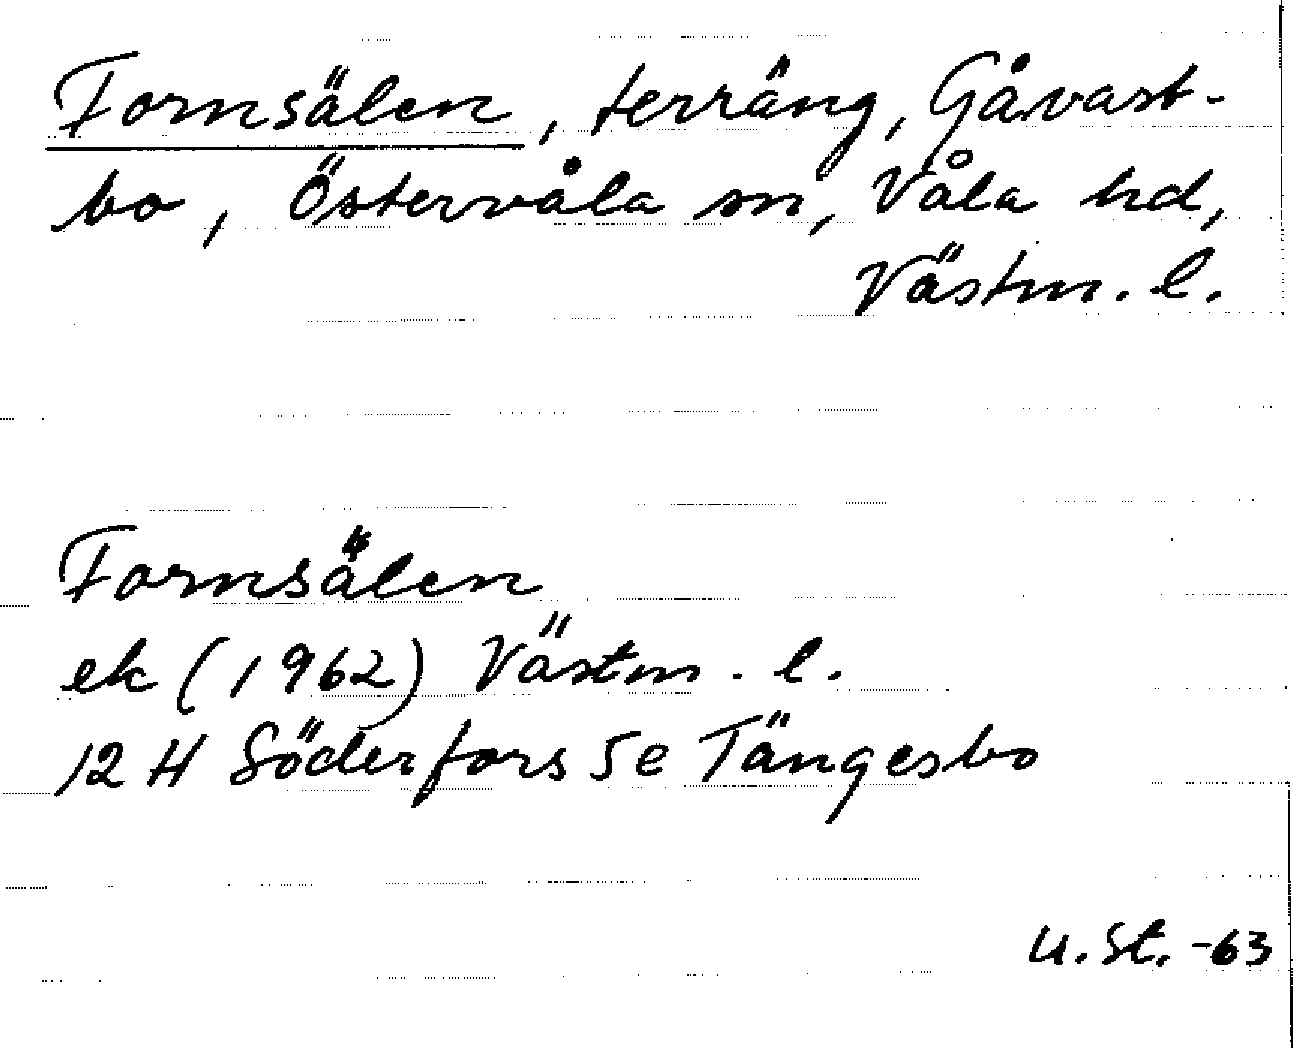 Fornsälen, terräng, Gåvast-
bo, Östervåla sn, Våla hd,
Västm. l.
Fornsälen
ek (1962) Västm. l.
12 H Söderfors 5e Tängesbo
U. St. -63